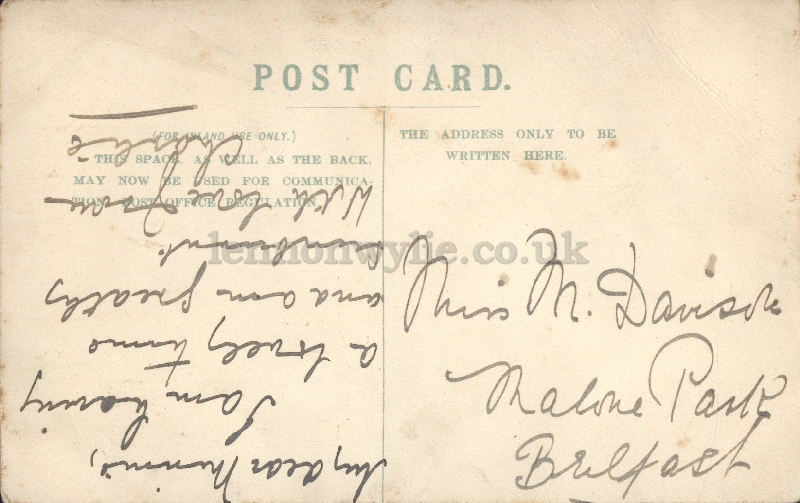 POST CARD.
(FOR INLAND USE ONLY.)
THIS SPACE, AS WELL AS THE BACK,
MAY NOW BE USED FOR COMMUNICA-
TION. POST OFFICE REGULATION.
THE ADDRESS ONLY TO BE
WRITTEN HERE.
My dear Minnie,
I am having
a lovely time
and am greatly
sunburnt
With love from
Charlie
Miss M. Davison
Malone Park
Belfast
lennonwylie.co.uk